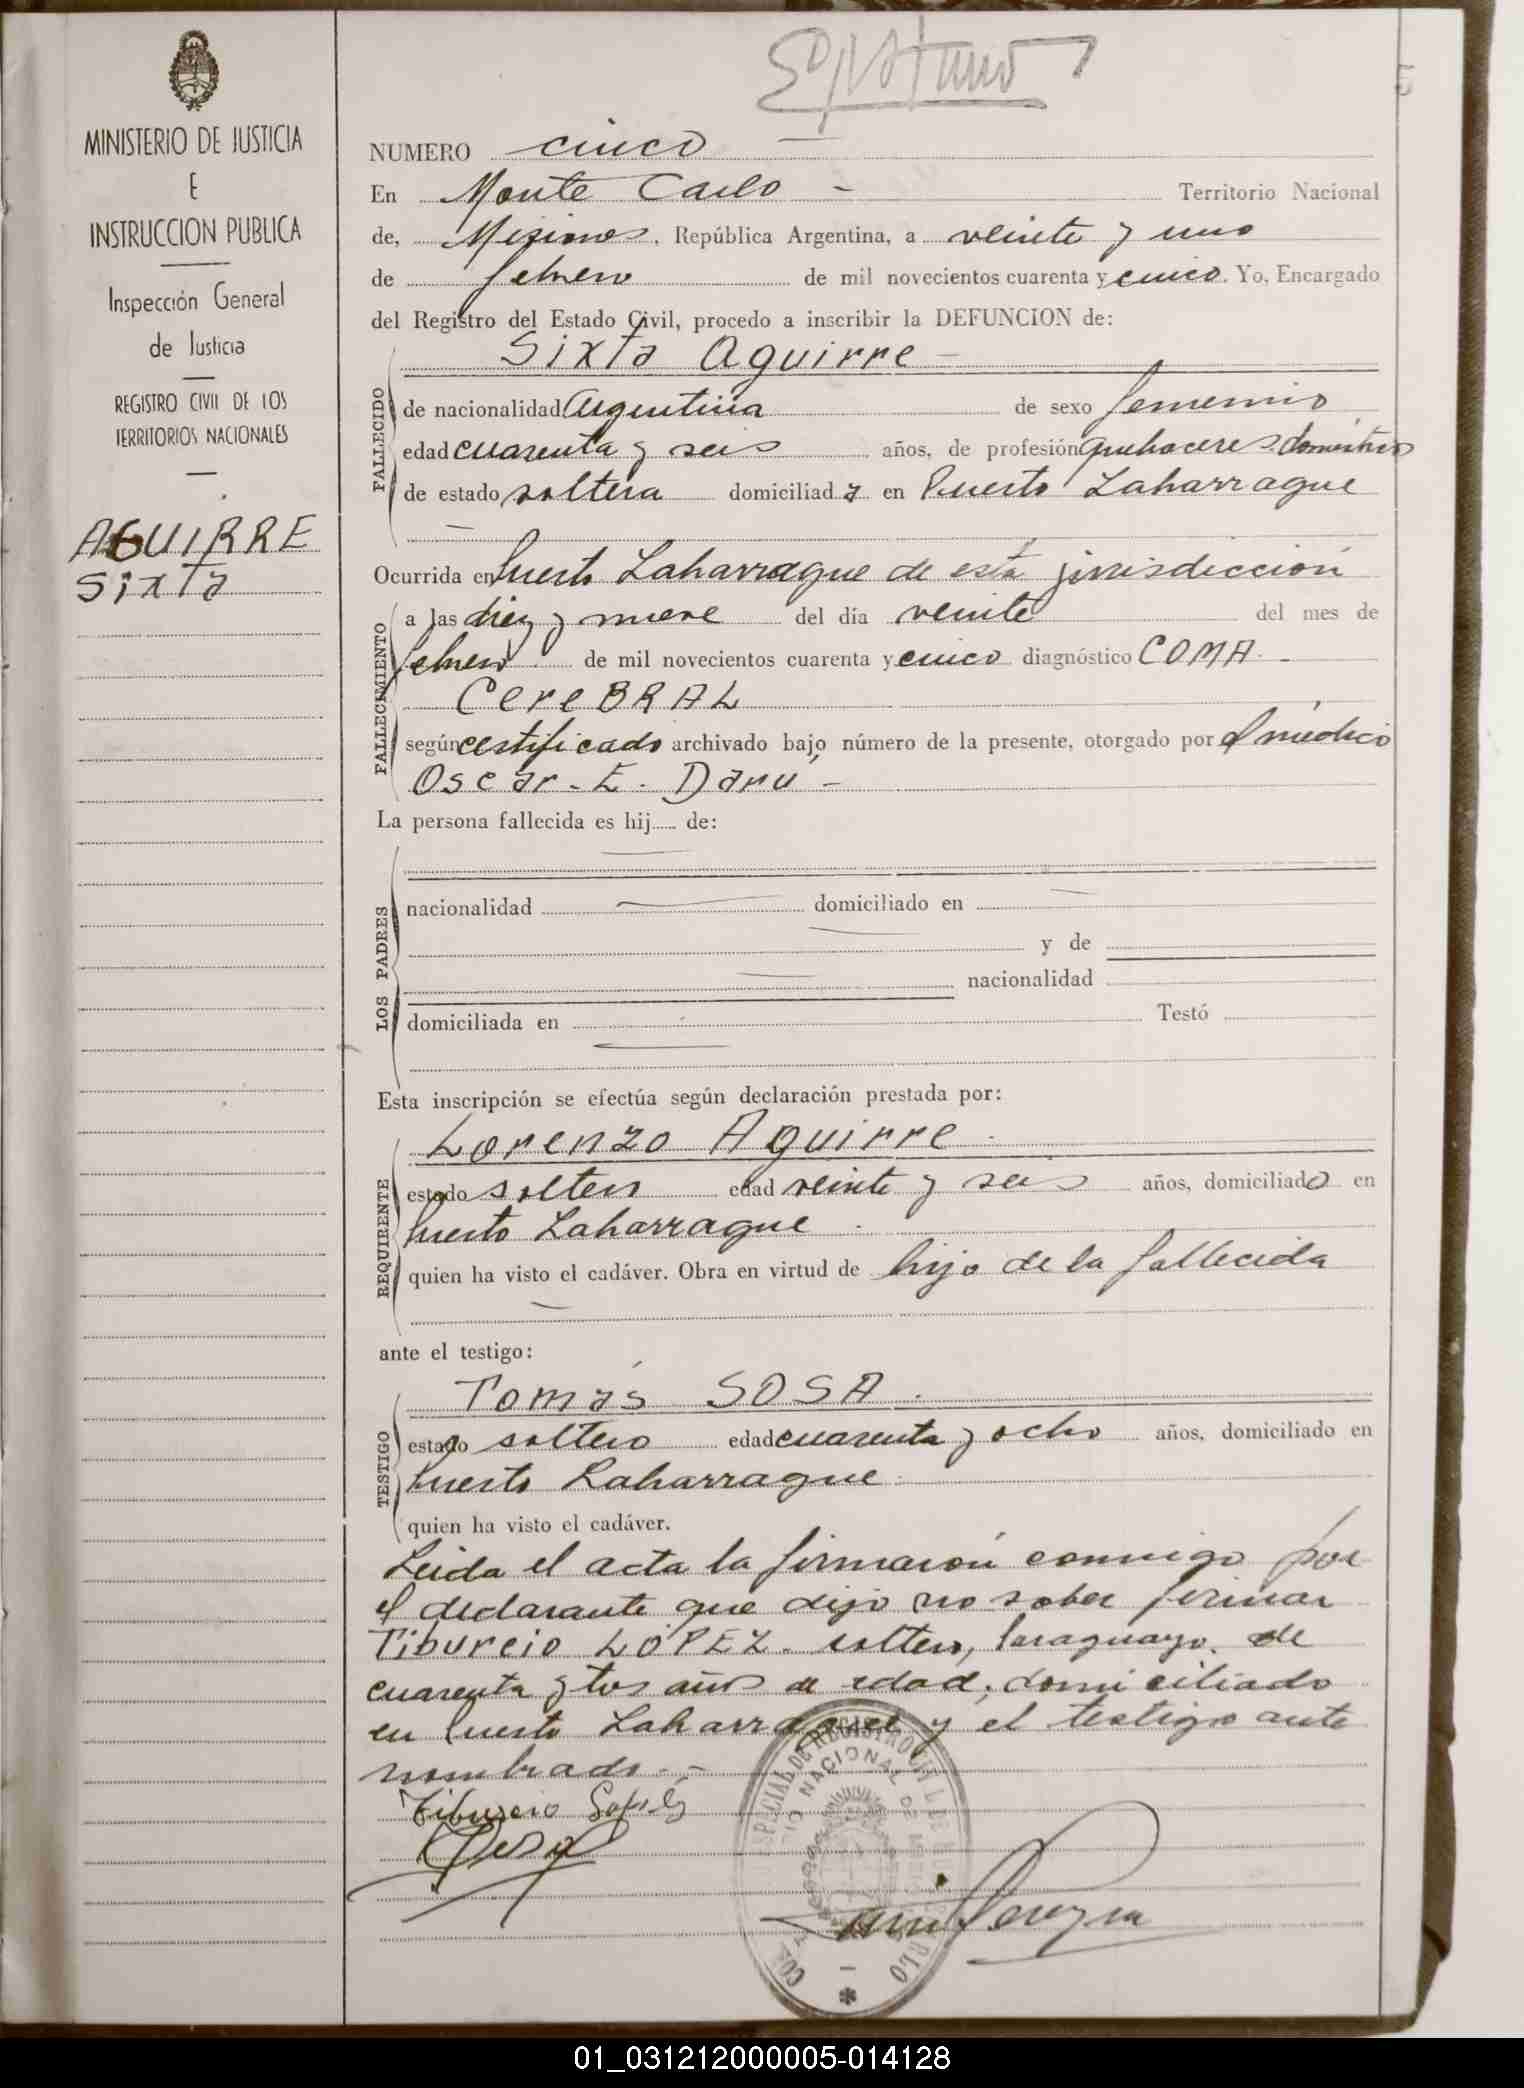 5
MINISTERIO DE JUSTICIA
E
INSTRUCCION PUBLICA
Inspección General
de Justicia
REGISTRO CIVIL DE LOS
TERRITORIOS NACIONALES
AGUIRRE
Sixta
NUMERO cinco
En Monte Carlo - Territorio Nacional
de, Misiones, República Argentina, a veinte y uno
de febrero de mil novecientos cuarenta y cinco. Yo, Encargado
del Registro del Estado Civil, procedo a inscribir la DEFUNCION de:
Sixta Aguirre -
FALLECIDO
de nacionalidad Argentina de sexo femenino
edad cuarenta y seis años, de profesión quehaceres domésticos
de estado soltera domiciliada en Puerto Laharrague
Ocurrida en Puerto Laharrague de esta jurisdicción
FALLECIMIENTO
a las diez y nueve del día veinte del mes de
febrero de mil novecientos cuarenta y cinco diagnóstico COMA
CereBRAL
según certificado archivado bajo número de la presente, otorgado por el médico
Oscar. E. Darú -
La persona fallecida es hij de:
LOS PADRES
nacionalidad domiciliado en
y de
nacionalidad
domiciliada en Testó
Esta inscripción se efectúa según declaración prestada por:
Lorenzo Aguirre
REQUIRENTE
estado soltero edad veinte y seis años, domiciliado en
Puerto Laharrague
quien ha visto el cadáver. Obra en virtud de hijo de la fallecida
ante el testigo:
Tomás SOSA
TESTIGO
estado soltero edad cuarenta y ocho años, domiciliado en
Puerto Laharrague
quien ha visto el cadáver.
Leida el acta la firmaron conmigo por
el declarante que dijo no saber firmar
Tiburcio LÓPEZ. soltero, Paraguayo. de
cuarenta y tres años de edad, domiciliado
en Puerto Laharrague y el testigo ante
nombrado. -
Tiburcio Lopez
01_031212000005-014128